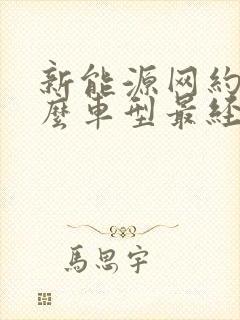 新能源网约
麽车型最经
馬思宇